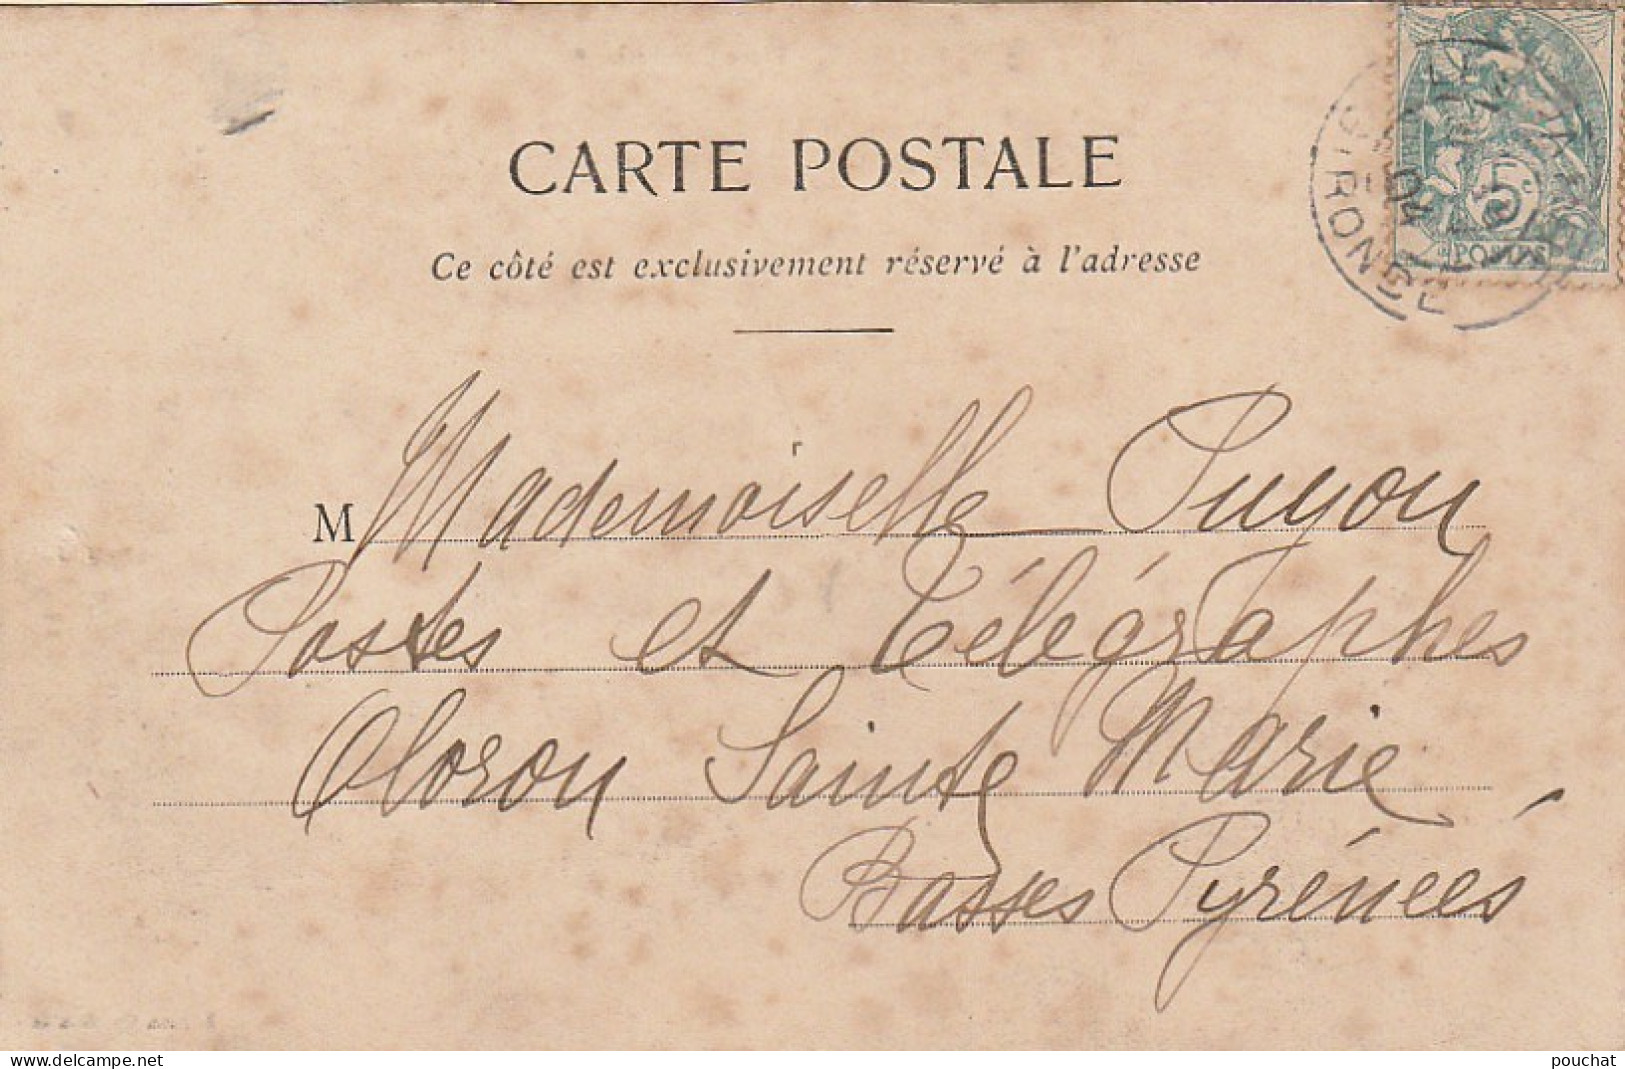 CARTE POSTALE
Ce côté est exclusivement réservé à l'adresse
GIRONDE
04
5c
POSTES
M Mademoiselle Puyou
Postes et Télégraphes
Oloron Sainte Marie
Basses Pyrénées
www.delcampe.net
pouchat